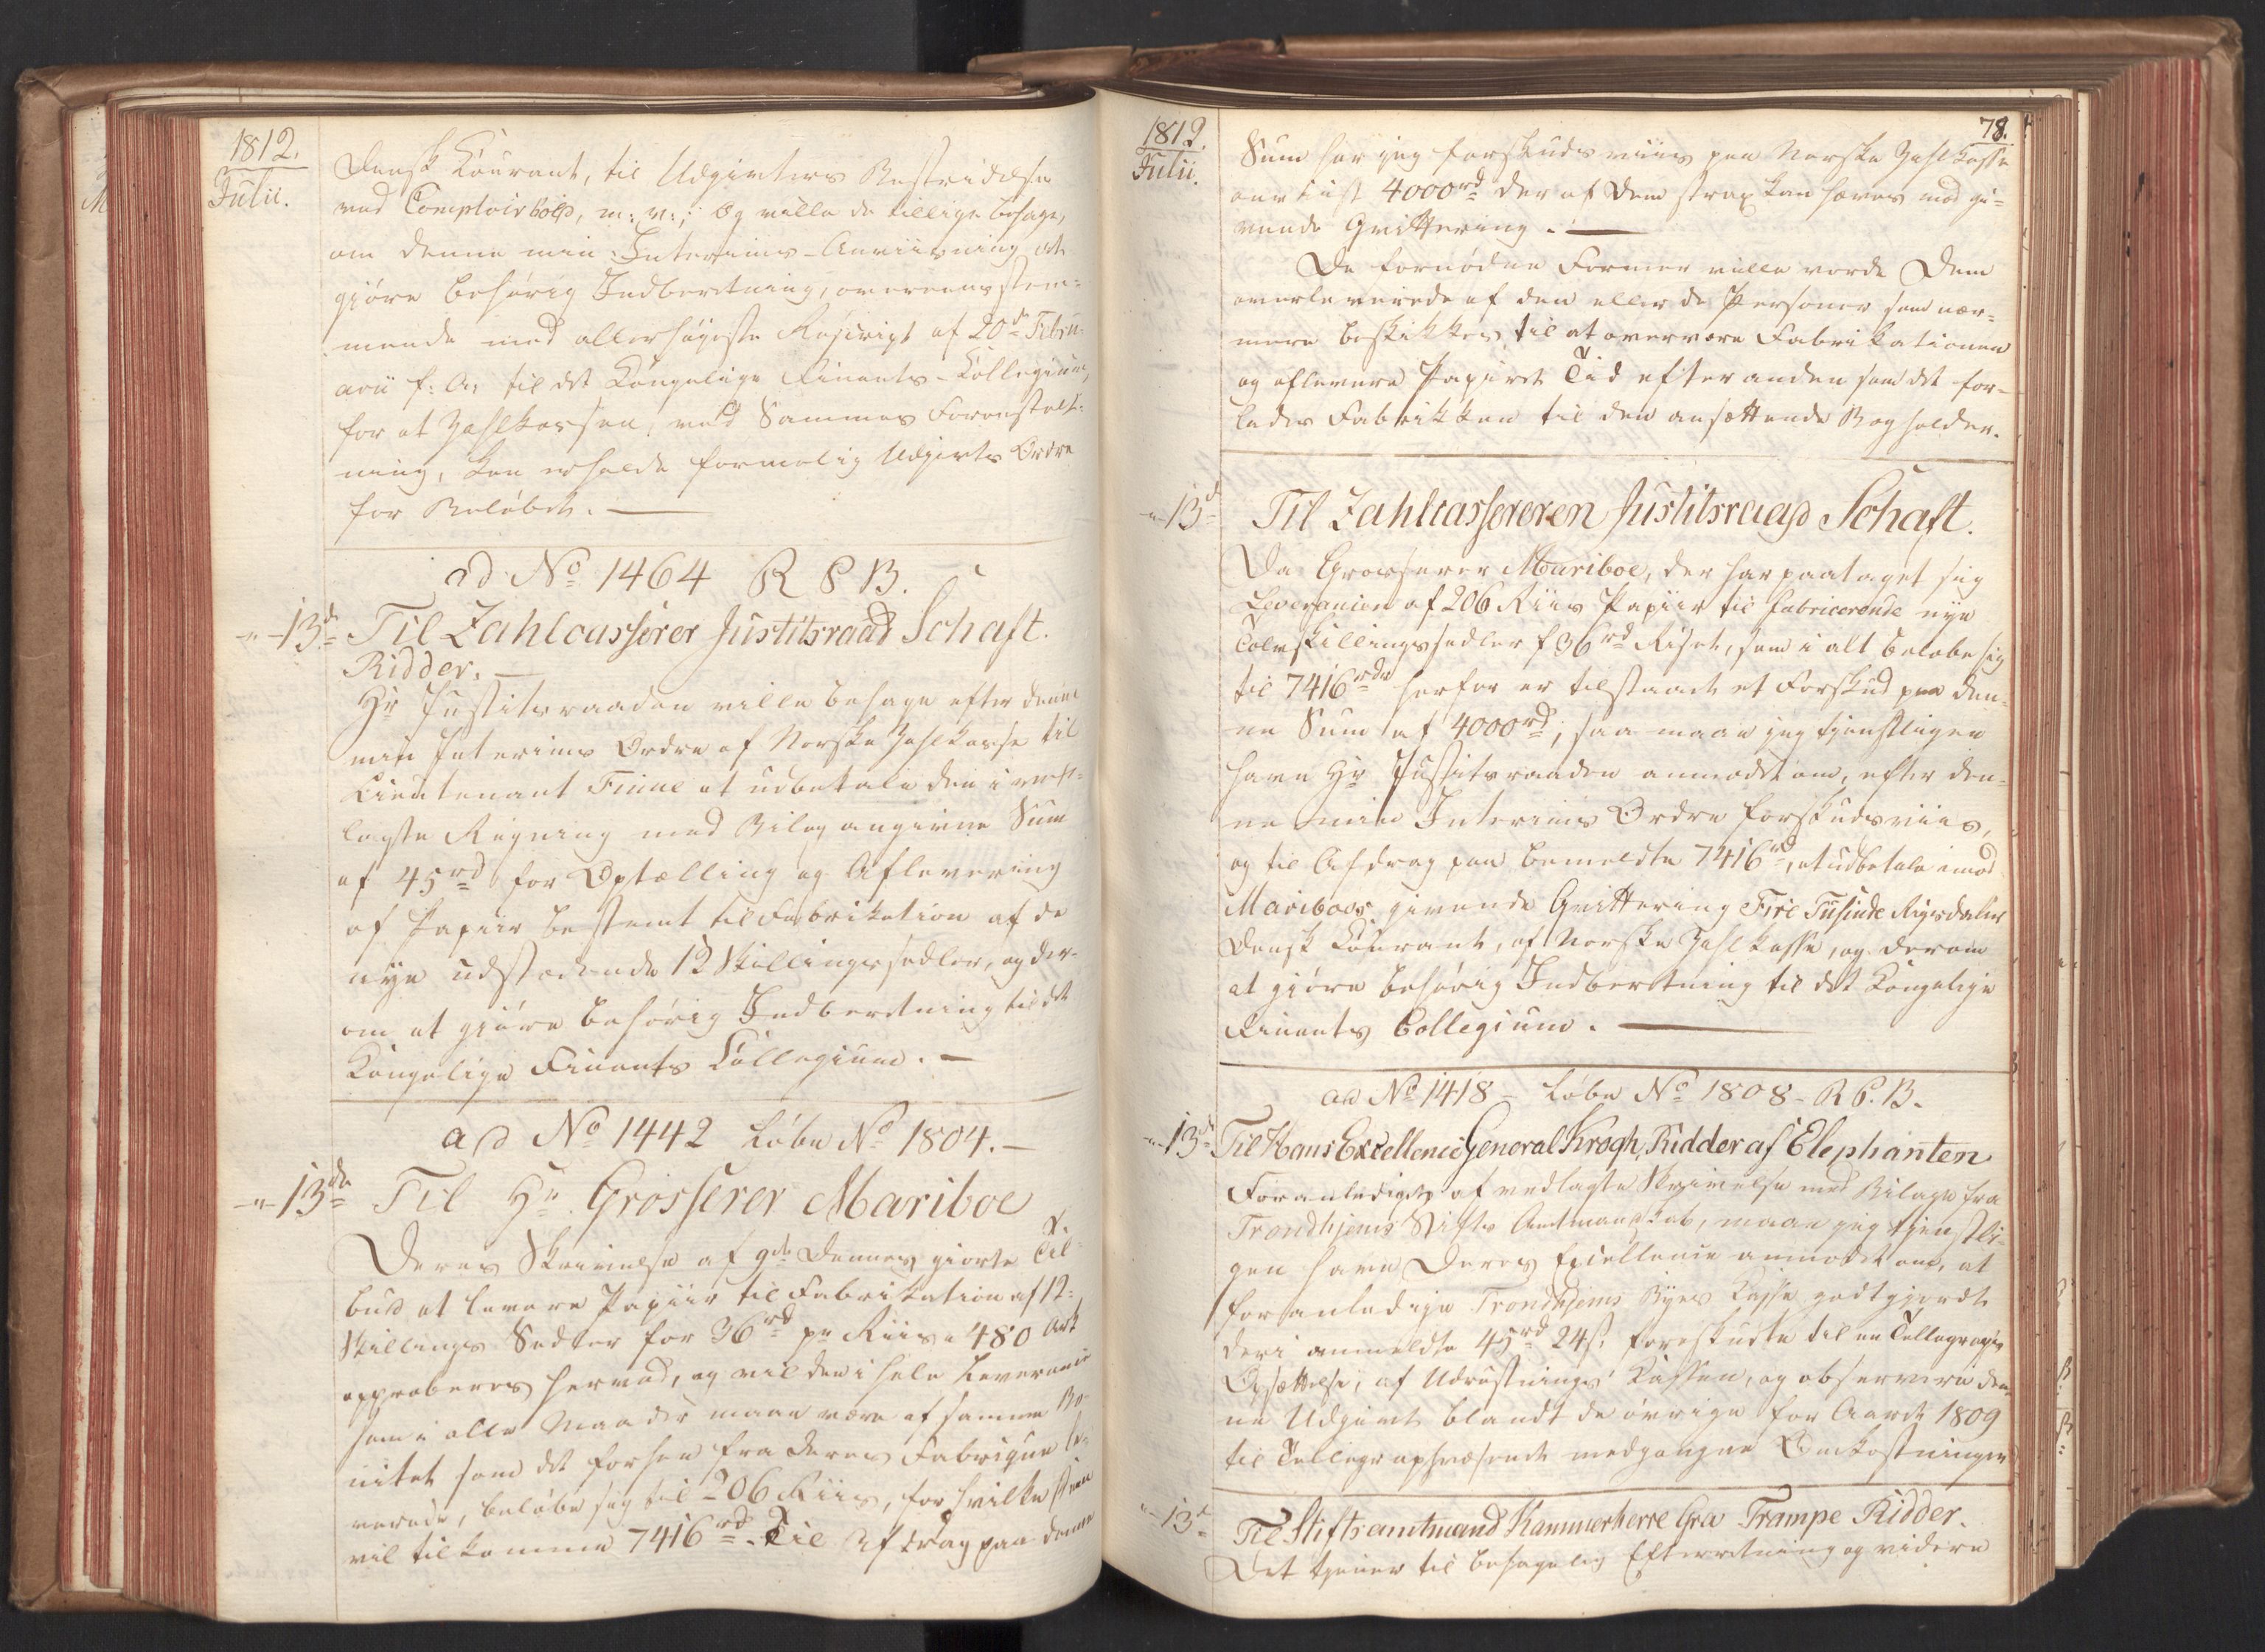 1812.
Julii.
Dansk Courant, til Udgivters Bestridelse
ved Comptoirhold, m: v:; og ville de tillige behage,
om denne min Interims-Anviisning at
gjöre behörig Indberetning, overeensstem-
mende med allerhöyeste Rescript af 20de Febru-
arii f: A: til det Kongelige Finants-Collegium,
for at Zahlkassen, ved Sammes Foranstalt-
ning, kan erholde formelig Udgivts Ordre
for Belöbet.
ad No 1464 R P B.
-"-13de Til Zahlcasserer Justitsraad Schaft.
Ridder.
Hr Justitsraaden ville behage efter denne
min Interims Ordre af Norske Zahlkasse til
Lieutenant Finne at udbetale den i ved-
lagte Regning med Bilag angivne Sum
af 45rd for Optælling og Aflevering
af Papiir bestemt til Fabrikation af de
nye udstædende 12 Skillingssedler, og der-
om at gjöre behörig Indberetning til det
Kongelige Finants Collegium.
ad No 1442 Löbe No 1804.
-"-13de Til Hr Grosserer Mariboe
Deres Skrivelse af 9de Dennes giorte Til-
bud at levere Papiir til Fabrikation af 12-
Skillings Sedler for 36rd pr Riis a 480 Ark
approberes herved, og vil den i hele Leverance
som i alle Maader maae være af samme Bo-
nitet som det forhen fra Deres Fabrique le-
verede, belöbe sig til 206 Riis, for hvilke Dem
vil tilkomme 7416rd. Til Afdrag paa denne
1812.
Julii.
78.
Sum har jeg forskudsviis paa Norske Zahlkasse
anviist 4000rd der af Dem strax kan hæves mod gi-
vende Qvittering.
De fornödne Former ville vorde Dem
overleverede af den eller de Personer som nær-
mere beskikkes til at overvære Fabrikationen
og aflevere Papiret Tid efter anden som det for-
lader Fabrikken til den ansættende Bogholder.
-"-13de Til Zahlcassereren Justitsraad Schaft.
Da Grosserer Mariboe, der har paataget sig
Leverancen af 206 Riis Papiir til fabricerende nye
Tolvskillingssedler f 36rd Riset, som i alt belöbe sig
til 7416rdr herfor er tilstaaet et Forskud paa den-
ne Sum af 4000rd, saa maae jeg tjenstligen
have Hr Justitsraaden anmodet om, efter den-
ne min Interims Ordre forskudsviis,
og til Afdrag paa bemeldte 7416rd, at udbetale imod
Mariboes givende Qvittering Fire Tusinde Rigsdaler
Dansk Courant, af Norske Zahlkasse, og derom
at gjöre behörig Indberetning til det Kongelige
Finants Collegium.
ad No 1418 - Löbe No 1808 - R P. B.
-"-13de Til Hans Excellence General Krogh, Ridder af Elephanten
Foranlediget af vedlagte Skrivelse med Bilage fra
Trondhjems Stifts Amtmandskab, maae jeg tjenstli-
gen have Deres Excellence anmodet om, at
foranledige Trondhjems Byes Kasse godtgjordt
deri anmeldte 45rd 24s. forskudte til en Tellegraphs
Opsættelse, af Udrustnings Kassen, og observere den-
ne Udgivt blandt de övrige for Aaret 1809
til Tellegraphvæsenet medgangne Omkostninger
-"-13de Til Stiftsamtmand Kammerherre Grev Trampe Ridder.
Det tjener til behagelig Efterretning og videre